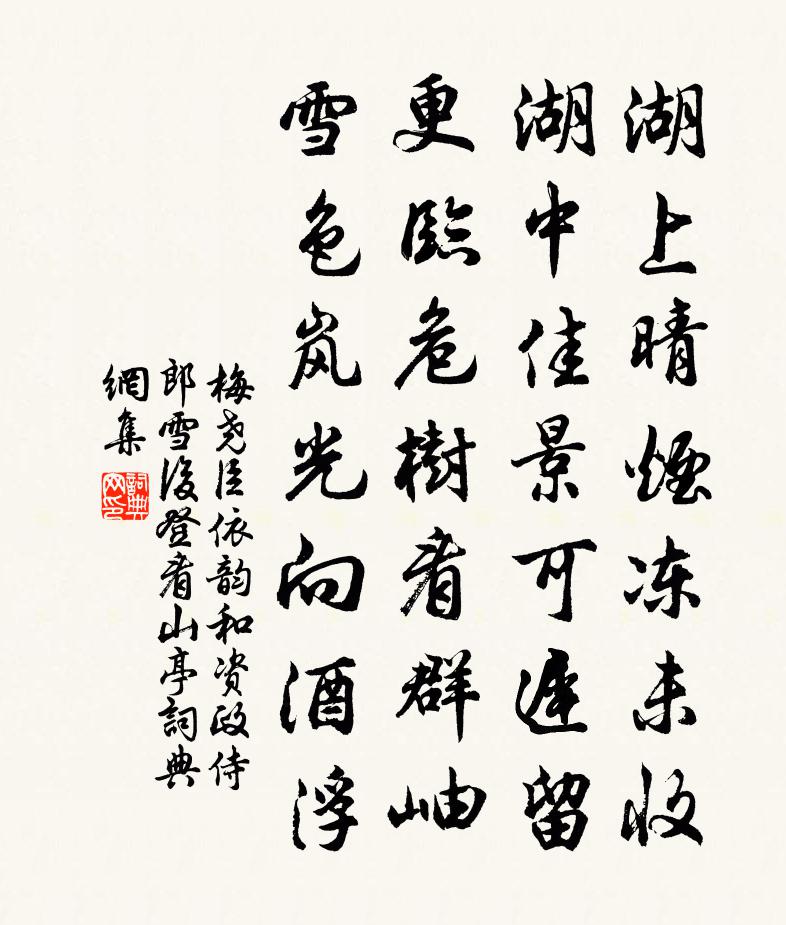 湖上晴煙冻未收
湖中佳景可遲留
更臨危樹看群岫
雪色岚光向酒浮
梅尧臣依韵和资政侍
郎雪後登看山亭詞典
網集
詞典
网印